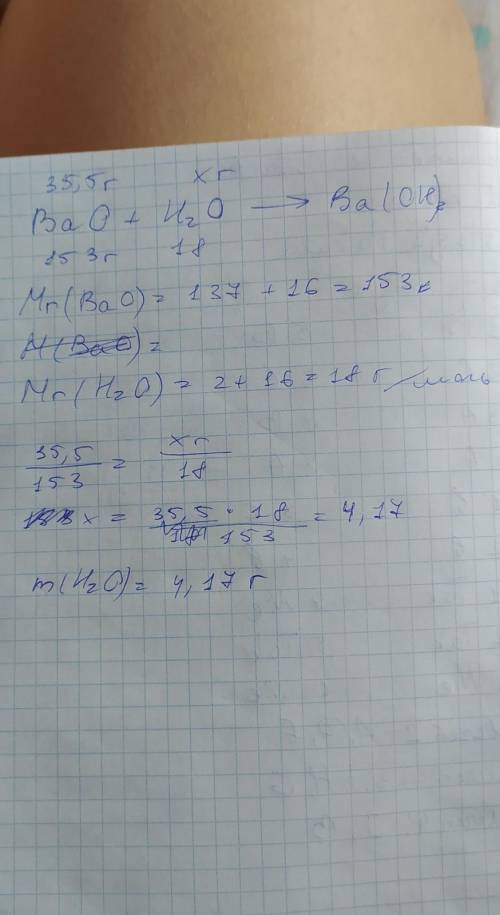 35,5г хг
BaO + H₂O → Ba(OH)₂
153г 18
Mr(BaO) = 137 + 16 = 153
M(BaO) =
Mr(H₂O) = 2 + 16 = 18 г/моль
35,5/153 = хг/18
х = 35,5 · 18/153 = 4,17
m(H₂O) = 4,17 г